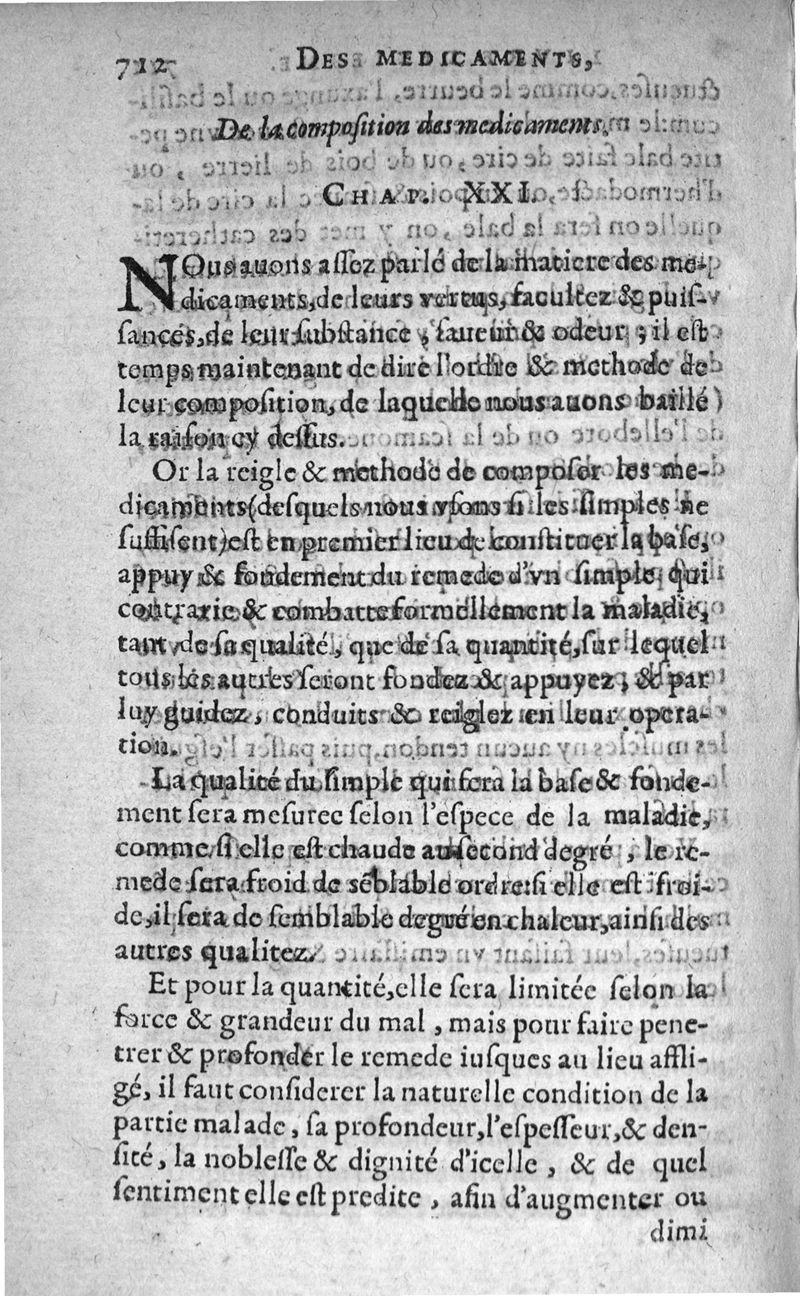 712 DES MEDICAMENTS,
De la composition des medicaments.
CHAP. XXI.
NOus auons assez parlé de la matiere des me-
dicaments, de leurs vertus, facultez & puis-
sances, de leur substance, saueur & odeur ; il est
temps maintenant de dire l'ordre & methode de
leur composition, de laquelle nous auons baillé
la raison cy dessus.
Or la reigle & methode de composer les me-
dicaments (desquels nous vsons si les simples ne
suffisent) est en premier lieu de constituer la base,
appuy & fondement du remede d'vn simple, qui
contrarie & combatte formellement la maladie,
tant de sa qualité, que de sa quantité, sur lequel
tous les autres seront fondez & appuyez, & par
luy guidez, conduits & reiglez en leur opera-
tion.
La qualité du simple qui sera la base & fonde-
ment sera mesuree selon l'espece de la maladie,
comme si elle est chaude au second degré, le re-
mede sera froid de sẽblable ordre: si elle est froi-
de, il sera de semblable degré en chaleur, ainsi des
autres qualitez.
Et pour la quantité, elle sera limitée selon la
force & grandeur du mal, mais pour faire pene-
trer & profonder le remede iusques au lieu affli-
gé, il faut considerer la naturelle condition de la
partie malade, sa profondeur, l'espesseur, & den-
sité, la noblesse & dignité d'icelle, & de quel
sentiment elle est predite, afin d'augmenter ou
dimi